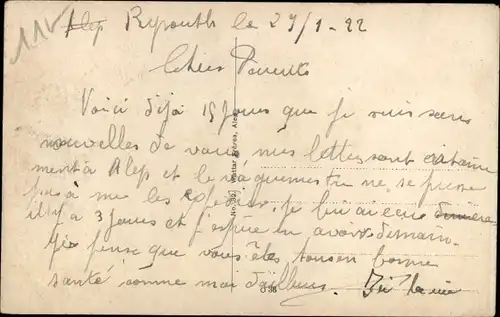 Alep Byrouth le 29/1-22
Chers Parents
Voici déjà 15 jours que je suis sans
nouvelles de vous, mes lettres sont certaine
ment à Alep et le vaguemestre ne se presse
pas à me les expédier, je lui ai écrit
il y a 3 jours et j'espère en avoir demain.
Je pense que vous êtes tous en bonne
santé comme moi d'ailleurs.